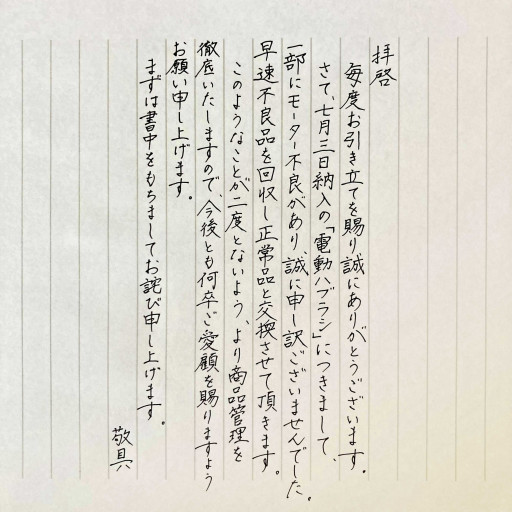 拝啓
毎度お引き立てを賜り誠にありがとうございます。
さて、七月三日納入の「電動ハブラシ」につきまして、
一部にモーター不良があり、誠に申し訳ございませんでした。
早速不良品を回収し正常品と交換させて頂きます。
このようなことが二度とないよう、より商品管理を
徹底いたしますので、今後とも何卒ご愛顧を賜りますよう
お願い申し上げます。
まずは書中をもちましてお詫び申し上げます。
敬具